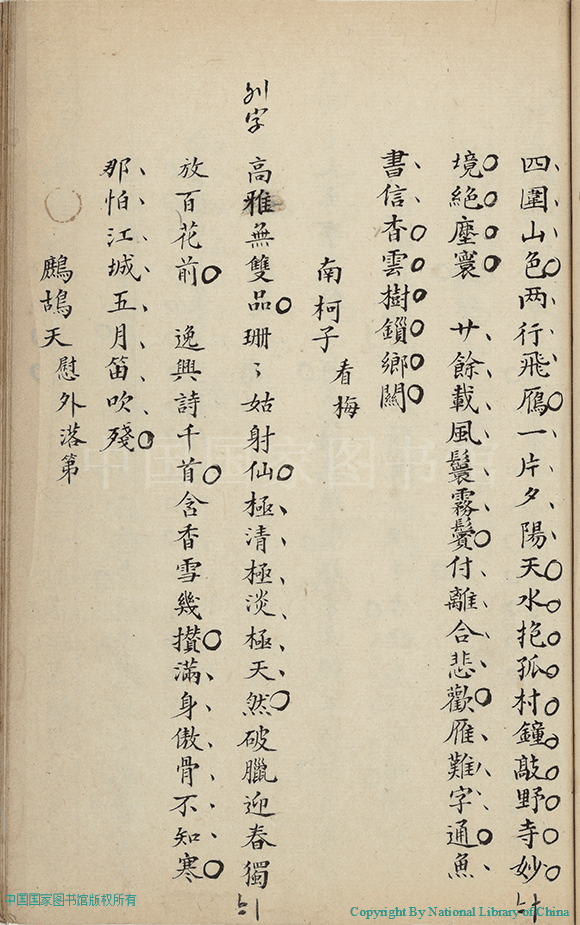 四圍山色两行飛鴈一片夕陽天水抱孤村鐘敲野寺妙
境絕塵寰　廿餘載風鬟霧鬢付離合悲歡雁難字通魚
書信杳雲樹鎖鄉關
南柯子 看梅
高雅無雙品珊〻姑射仙極清極淡極天然破臘迎春獨
放百花前　逸興詩千首含香雪幾攢滿身傲骨不知寒
那怕江城五月笛吹殘
鷓鴣天 慰外落第
中国国家图书馆
中国国家图书馆版权所有
Copyright By National Library of China